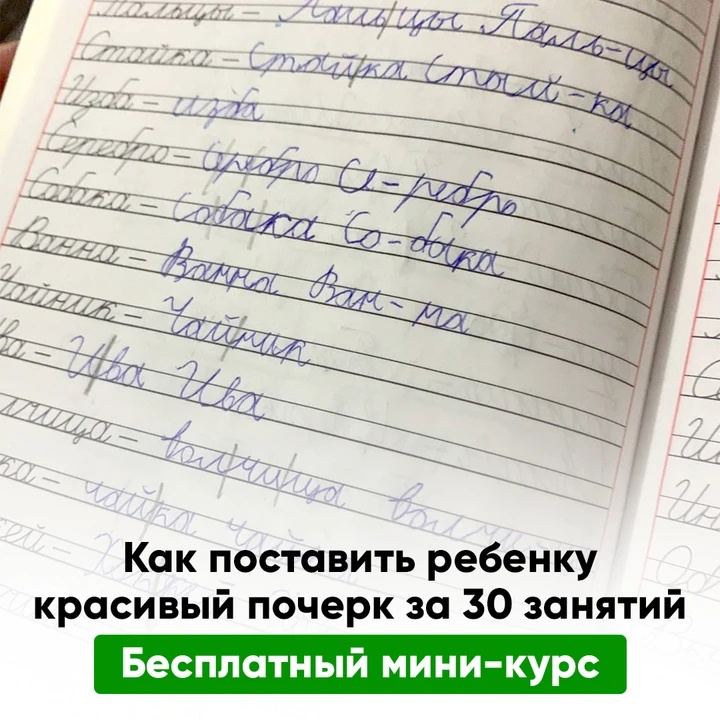 Пальцы – Пальцы Паль-цы
Стойка – Стой|ка Стый-ка
Изба – изба
Серебро – Серебро Се-ребро
Собака – Собака Со-бака
Ванна – Ванна Ван-на
Чайник – Чай|ник
ва – И|ва Ива
лчица – вол|чи|ца волчи
ка – чай|ка чай
кей –
Как поставить ребенку
красивый почерк за 30 занятий
Бесплатный мини-курс